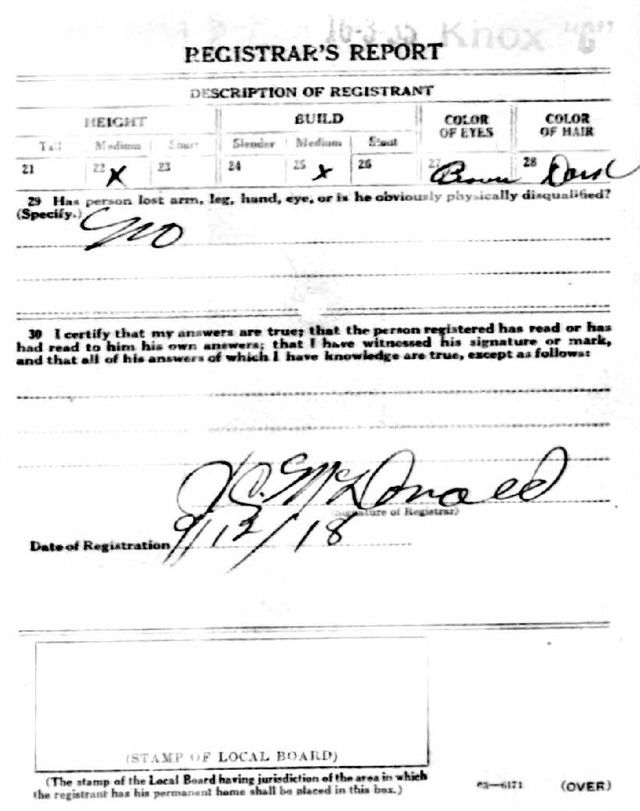 Knox "C"
REGISTRAR'S REPORT
DESCRIPTION OF REGISTRANT
HEIGHT BUILD COLOR OF EYES COLOR OF HAIR
Tall Medium Short Slender Medium Stout
21 22 X 23 24 25 X 26 27 Brown 28 Dark
29 Has person lost arm, leg, hand, eye, or is he obviously physically disqualified?
(Specify.) No
30 I certify that my answers are true; that the person registered has read or has
had read to him his own answers; that I have witnessed his signature or mark,
and that all of his answers of which I have knowledge are true, except as follows:
McDonald
(Signature of Registrar)
Date of Registration 9/12/18
(STAMP OF LOCAL BOARD)
(The stamp of the Local Board having jurisdiction of the area in which
the registrant has his permanent home shall be placed in this box.)
03—6171 (OVER)